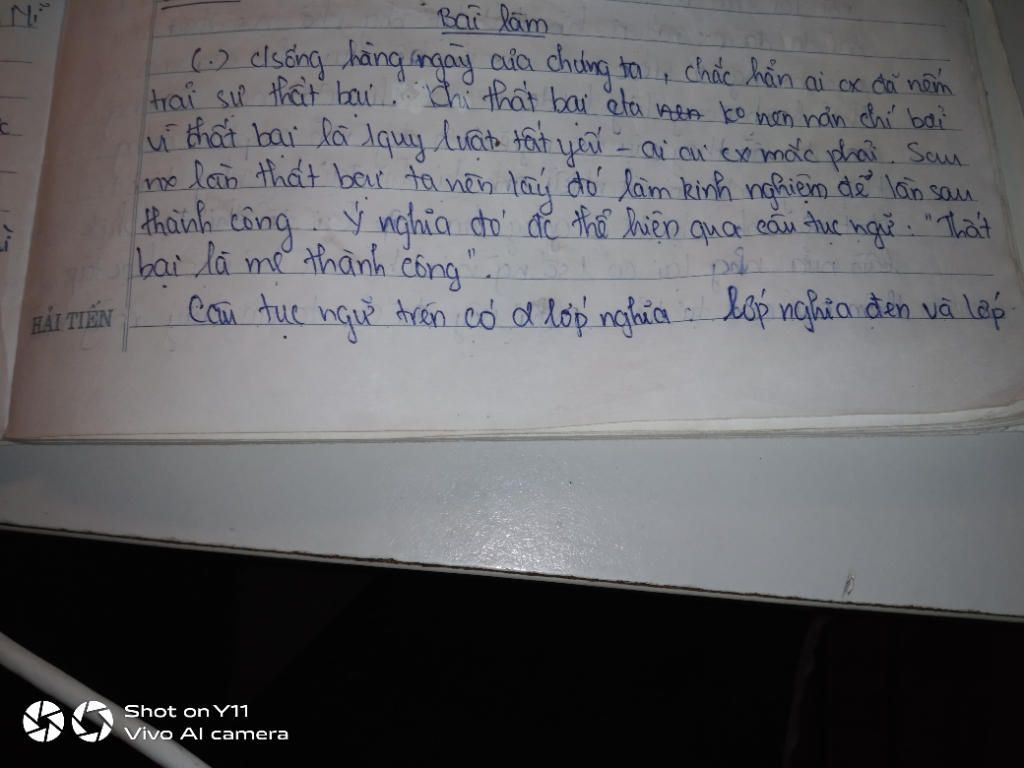 Ni
Bài làm
(.) c/sống hàng ngày của chúng ta, chắc hẳn ai cx đã nếm
trải sự thất bại. Khi thất bại cta nen ko nen nản chí bởi
vì thất bại là 1 quy luật tất yếu - ai cũ cx mắc phải. Sau
mỗi lần thất bại ta nên lấy đó làm kinh nghiệm để lần sau
thành công. Ý nghĩa đó đc thể hiện qua câu tục ngữ: "Thất
bại là mẹ thành công".
HẢI TIẾN
Câu tục ngữ trên có 2 lớp nghĩa: lớp nghĩa đen và lớp
Shot on Y11
Vivo AI camera